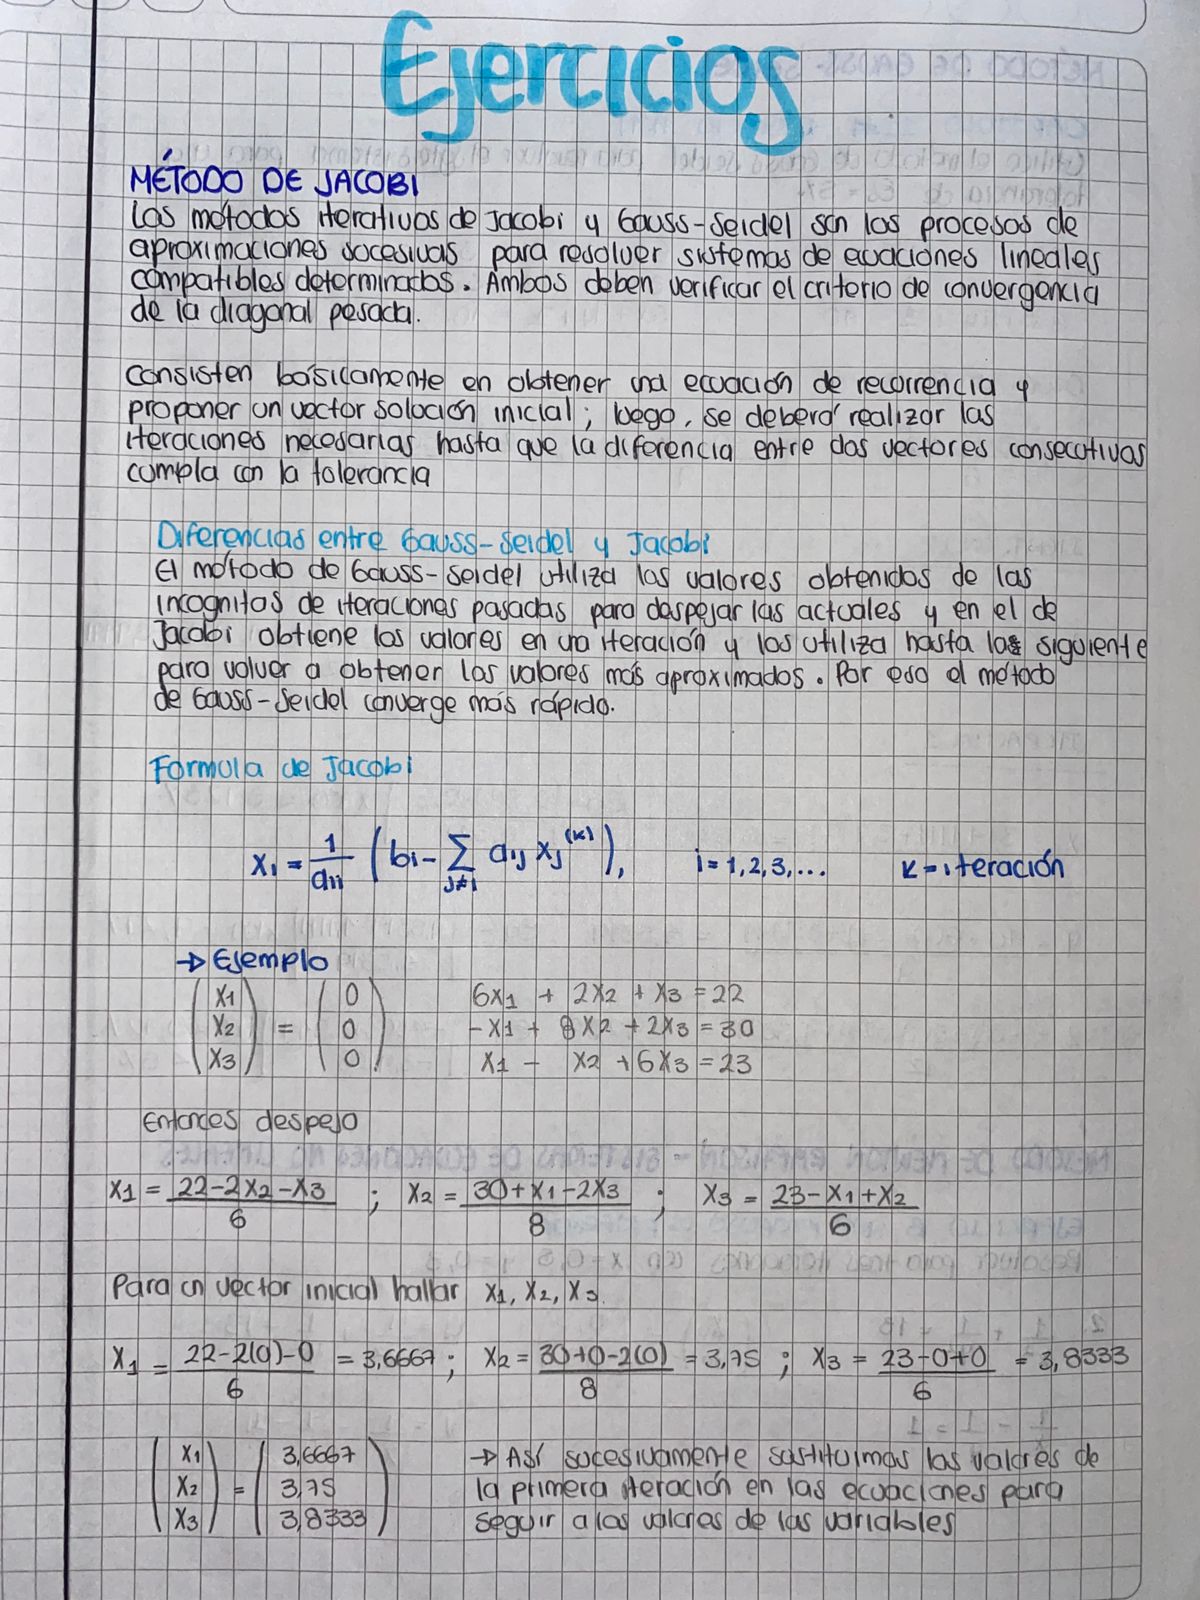 Ejercicios
MÉTODO DE JACOBI
Los métodos iterativos de Jacobi y Gauss-Seidel son los procesos de
aproximaciones sucesivas para resolver sistemas de ecuaciones lineales
compatibles determinados. Ambos deben verificar el criterio de convergencia
de la diagonal pesada.
Consisten básicamente en obtener una ecuación de recurrencia y
proponer un vector solución inicial; luego, se deberá realizar las
iteraciones necesarias hasta que la diferencia entre dos vectores consecutivos
cumpla con la tolerancia
Diferencias entre Gauss-Seidel y Jacobi
El método de Gauss-Seidel utiliza los valores obtenidos de las
incognitas de iteraciones pasadas para despejar las actuales y en el de
Jacobi obtiene los valores en una iteración y los utiliza hasta las siguiente
para volver a obtener los valores más aproximados. Por eso el método
de Gauss-Seidel converge más rápido.
Formula de Jacobi
xi = 1/aii (bi - Σ j≠i aij xj^(k)), i = 1,2,3,... K = iteración
→ Ejemplo
(x1) = (0) 6x1 + 2x2 + x3 = 22
(x2) = (0) -x1 + 8x2 + 2x3 = 30
(x3) = (0) x1 - x2 + 6x3 = 23
Entonces despejo
x1 = (22-2x2-x3)/6 ; x2 = (30+x1-2x3)/8 ; x3 = (23-x1+x2)/6
Para un vector inicial hallar x1, x2, x3.
x1 = (22-2(0)-0)/6 = 3,6667 ; x2 = (30+0-2(0))/8 = 3,75 ; x3 = (23-0+0)/6 = 3,8333
(x1) = (3,6667) → Así sucesivamente sustituimos los valores de
(x2) = (3,75) la primera iteración en las ecuaciones para
(x3) = (3,8333) seguir a los valores de las variables